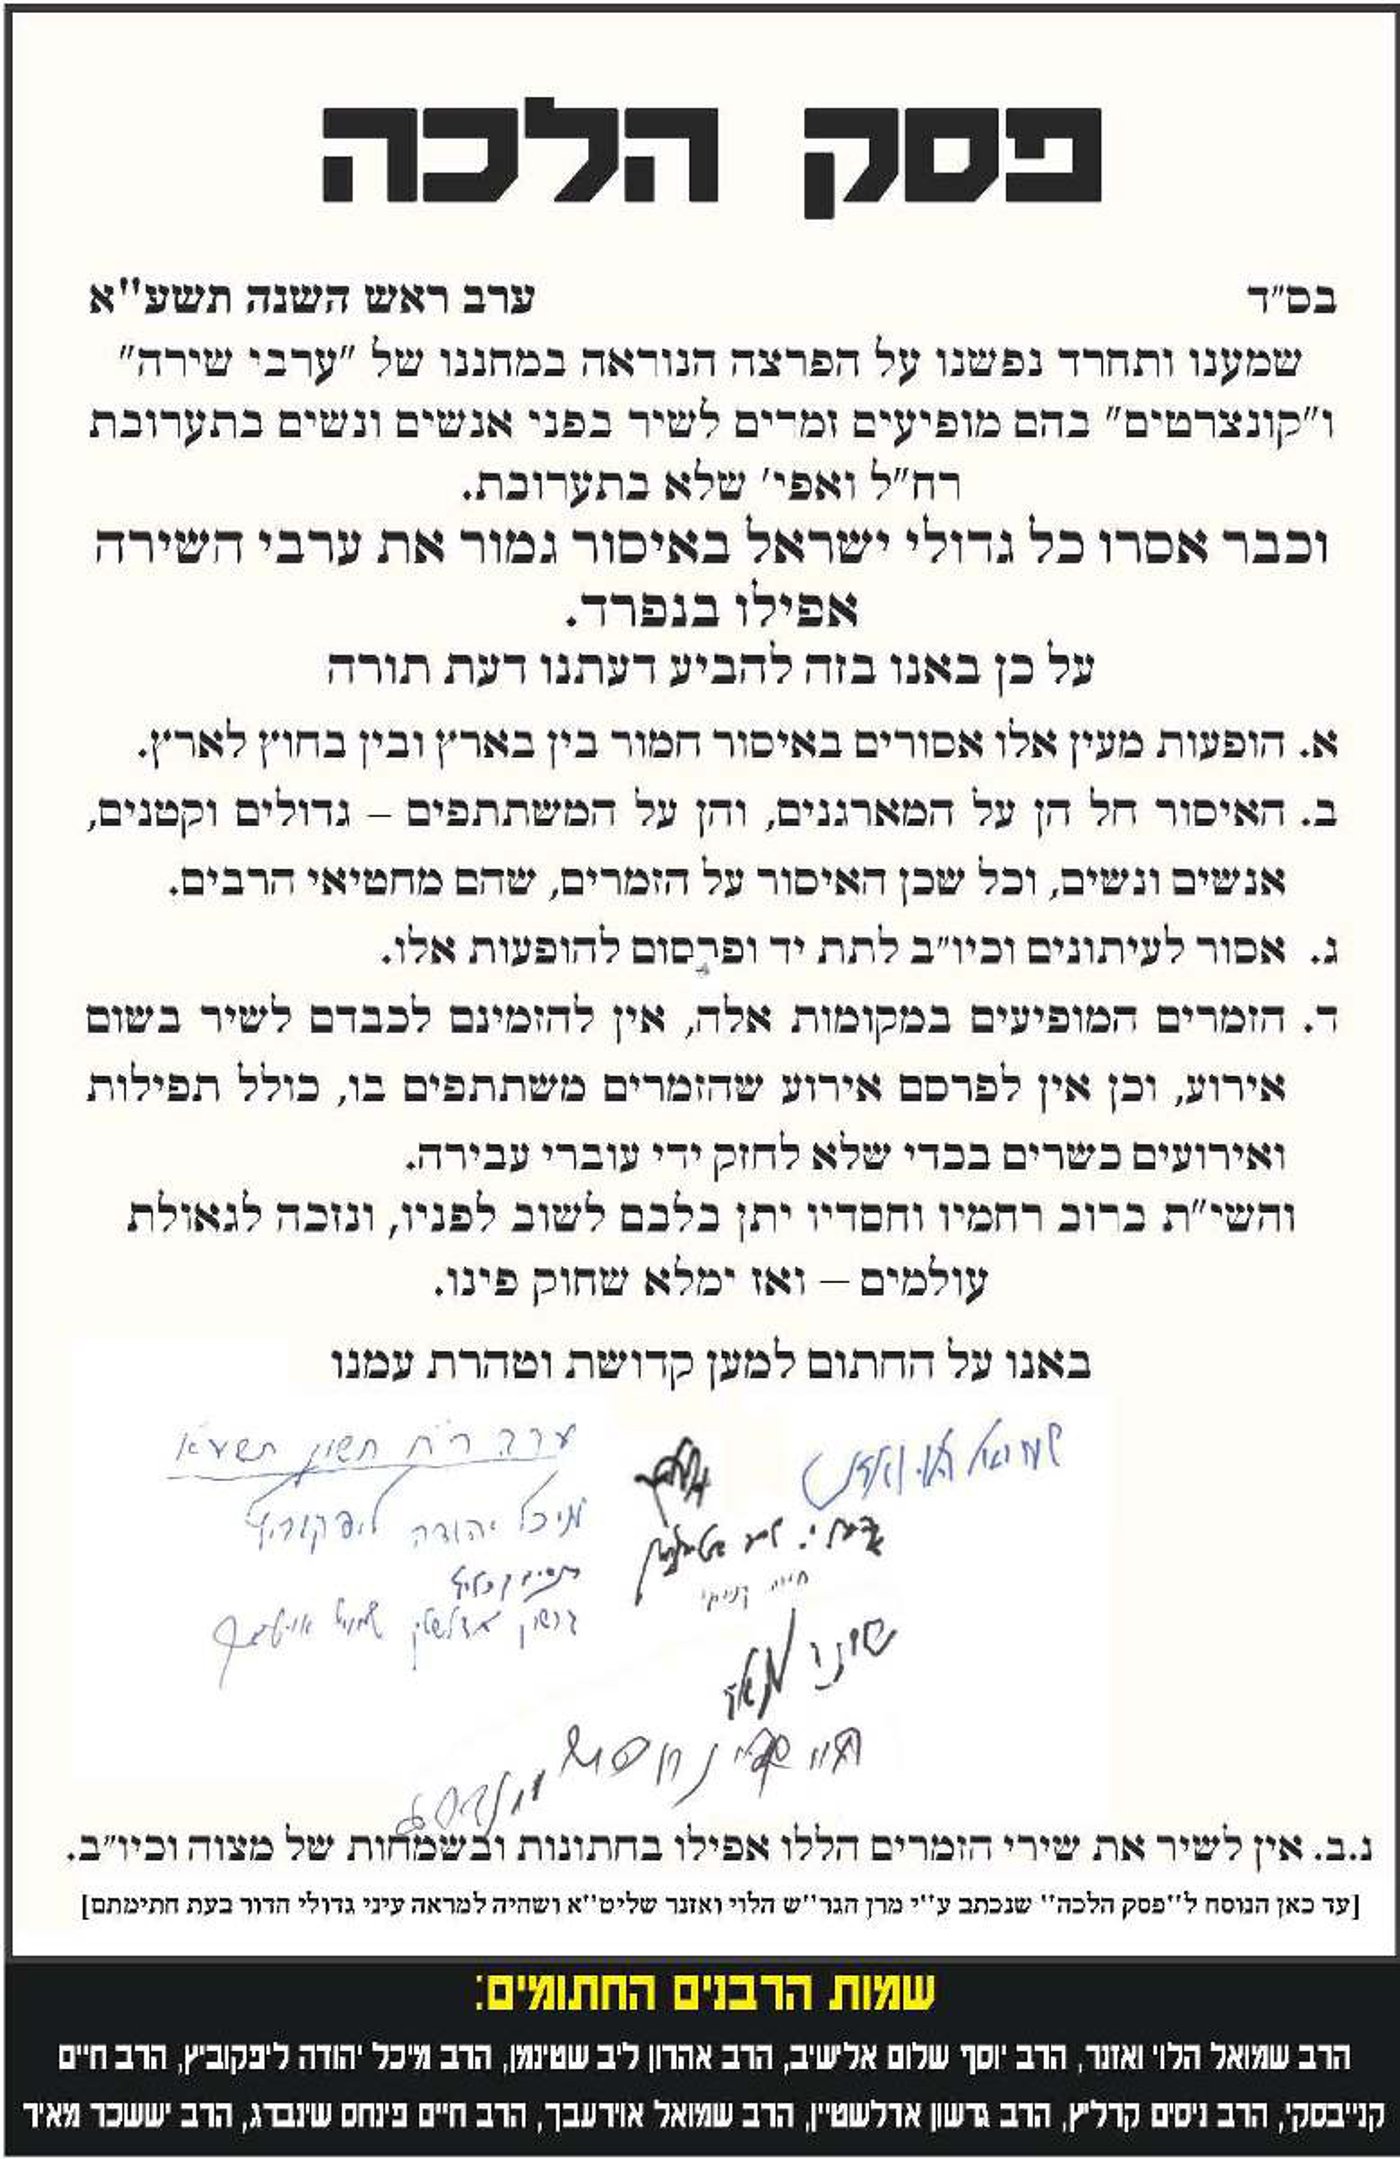 פסק הלכה
בס"ד ערב ראש השנה תשע"א
שמענו ותחרד נפשנו על הפרצה הנוראה במחננו של "ערבי שירה"
ו"קונצרטים" בהם מופיעים זמרים לשיר בפני אנשים ונשים בתערובת
רח"ל ואפי' שלא בתערובת.
וכבר אסרו כל גדולי ישראל באיסור גמור את ערבי השירה
אפילו בנפרד.
על כן באנו בזה להביע דעתנו דעת תורה
א. הופעות מעין אלו אסורים באיסור חמור בין בארץ ובין בחוץ לארץ.
ב. האיסור חל הן על המארגנים, והן על המשתתפים – גדולים וקטנים,
אנשים ונשים, וכל שכן האיסור על הזמרים, שהם מחטיאי הרבים.
ג. אסור לעיתונים וכיו"ב לתת יד ופרסום להופעות אלו.
ד. הזמרים המופיעים במקומות אלה, אין להזמינם לכבדם לשיר בשום
אירוע, וכן אין לפרסם אירוע שהזמרים משתתפים בו, כולל תפילות
ואירועים כשרים בכדי שלא לחזק ידי עוברי עבירה.
והשי"ת ברוב רחמיו וחסדיו יתן בלבם לשוב לפניו, ונזכה לגאולת
עולמים – ואז ימלא שחוק פינו.
באנו על החתום למען קדושת וטהרת עמנו
ערב ר"ח חשון תשע"א
שמואל הלוי ואזנר
מיכל יהודה ליפקוביץ
גרשון אדלשטין שמואל אויערבך
נ.ב. אין לשיר את שירי הזמרים הללו אפילו בחתונות ובשמחות של מצוה וכיו"ב.
[עד כאן הנוסח ל''פסק הלכה'' שנכתב ע''י מרן הגר''ש הלוי ואזנר שליט''א ושהיה למראה עיני גדולי הדור בעת חתימתם]
שמות הרבנים החתומים:
הרב שמואל הלוי ואזנר, הרב יוסף שלום אלישיב, הרב אהרון ליב שטינמן, הרב מיכל יהודה ליפקוביץ, הרב חיים
קנייבסקי, הרב ניסים קרליץ, הרב גרשון אדלשטיין, הרב שמואל אוירעבך, הרב חיים פינחס שינברג, הרב יששכר מאיר